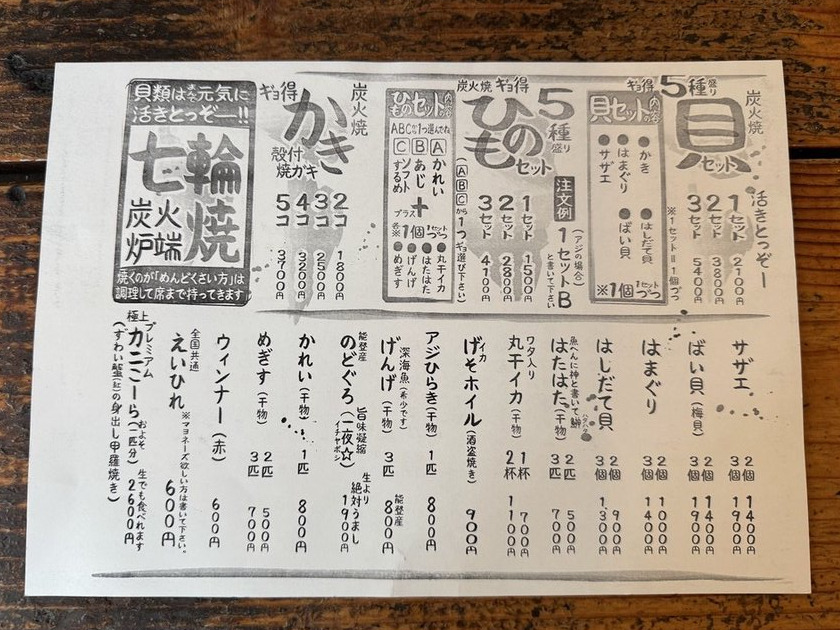 炭火焼
ギョ得
5種盛り
貝セット
活きとっぞー
1セット 2100円
2セット 3800円
3セット 5400円
※1セット=1個づつ
貝セットの内容
●かき
●はまぐり
●サザエ
●はしだて貝
●ばい貝
※1個づつ
炭火焼
ギョ得
5種盛り
ひものセット
注文例
(アジの場合)
1セットB
と書いて下さい
1セット 1500円
2セット 2800円
3セット 4100円
(ABCから1つギョ選び下さい)
ひものセットの内容
ABCから1つ選んでね
Aかれい
Bあじ
Cソフトするめ
+
プラス
1個づつ
●丸干イカ
●はたはた
●げんげ
●めぎす
炭火焼
ギョ得
かき
殻付
焼ガキ
2コ 1800円
3コ 2500円
4コ 3200円
5コ 3700円
貝類は元気に
活きとっぞー!!
七輪焼
炭火
炉端
焼くのが「めんどくさい方」は
調理して席まで持ってきます
サザエ
2個 1400円
3個 1900円
ばい貝(梅貝)
2個 1400円
3個 1900円
はまぐり
2個 1000円
3個 1400円
はしだて貝
2個 900円
3個 1300円
魚へんに神と書いて鰰
ハタハタ
はたはた(干物)
2匹 500円
3匹 700円
ワタ入り
丸干イカ(干物)
1杯 700円
2杯 1100円
イカ
げそホイル(酒盗焼き) 900円
アジひらき(干物) 1匹 800円
深海魚(希少です)
げんげ(干物) 3匹 800円
能登産
能登産
のどぐろ(一夜☆)
イチヤボシ
旨味凝縮
生より絶対うまし
1900円
かれい(干物) 1匹 800円
めぎす(干物)
2匹 500円
3匹 700円
ウィンナー(赤) 600円
全国共通
えいひれ 600円
※マヨネーズ欲しい方は書いて下さい。
極上
プレミアム
カニこーら(一匹分) 2600円
およそ
生でも食べれます
(ずわい蟹(紅)の身出し甲羅焼き)